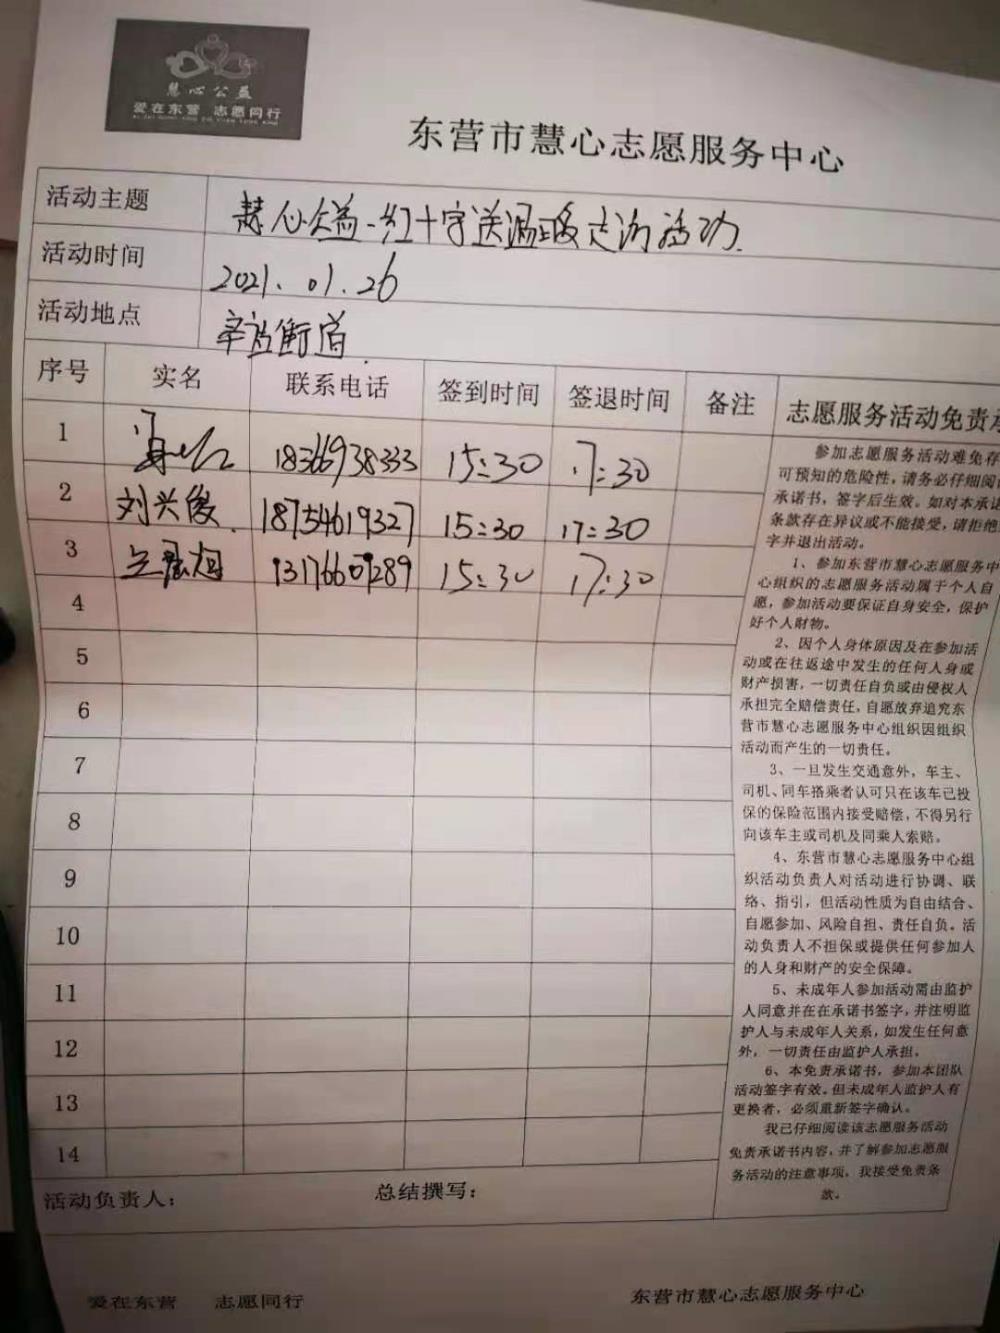 慧心公益
爱在东营 志愿同行
东营市慧心志愿服务中心
活动主题 慧心公益-红十字送温暖走访活动.
活动时间 2021.01.26
活动地点 辛店街道.
序号 实名 联系电话 签到时间 签退时间 备注 志愿服务活动免责承
1 18366938333 15:30 17:30
2 刘兴俊. 18754619327 15:30 17:30
3 13176609289 15:30 17:30
4
5
6
7
8
9
10
11
12
13
14
参加志愿服务活动难免存
可预知的危险性,请务必仔细阅
承诺书,签字后生效。如对本承诺
条款存在异议或不能接受,请拒绝
字并退出活动。
1、参加东营市慧心志愿服务中
心组织的志愿服务活动属于个人自
愿,参加活动要保证自身安全,保护
好个人财物。
2、因个人身体原因及在参加活
动或在往返途中发生的任何人身或
财产损害,一切责任自负或由侵权人
承担完全赔偿责任,自愿放弃追究东
营市慧心志愿服务中心组织因组织
活动而产生的一切责任。
3、一旦发生交通意外,车主、
司机、同车搭乘者认可只在该车已投
保的保险范围内接受赔偿,不得另行
向该车主或司机及同乘人索赔。
4、东营市慧心志愿服务中心组
织活动负责人对活动进行协调、联
络、指引,但活动性质为自由结合、
自愿参加、风险自担、责任自负。活
动负责人不担保或提供任何参加人
的人身和财产的安全保障。
5、未成年人参加活动需由监护
人同意并在在承诺书签字,并注明监
护人与未成年人关系,如发生任何意
外,一切责任由监护人承担。
6、本免责承诺书,参加本团队
活动签字有效。但未成年人监护人有
更换者,必须重新签字确认。
我已仔细阅读该志愿服务活动
免责承诺书内容,并了解参加志愿服
务活动的注意事项,我接受免责条
款。
活动负责人: 总结撰写:
爱在东营 志愿同行 东营市慧心志愿服务中心